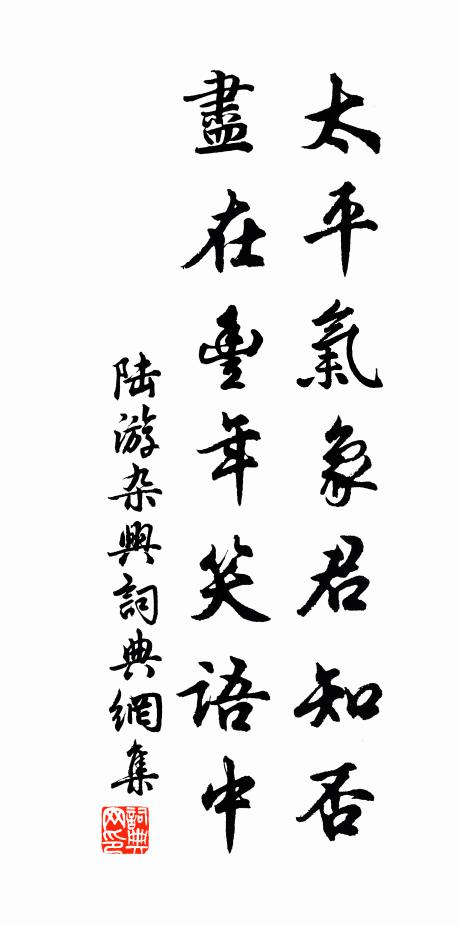 太平氣象君知否
盡在豐年笑語中
陆游杂興詞典網集
詞典网印